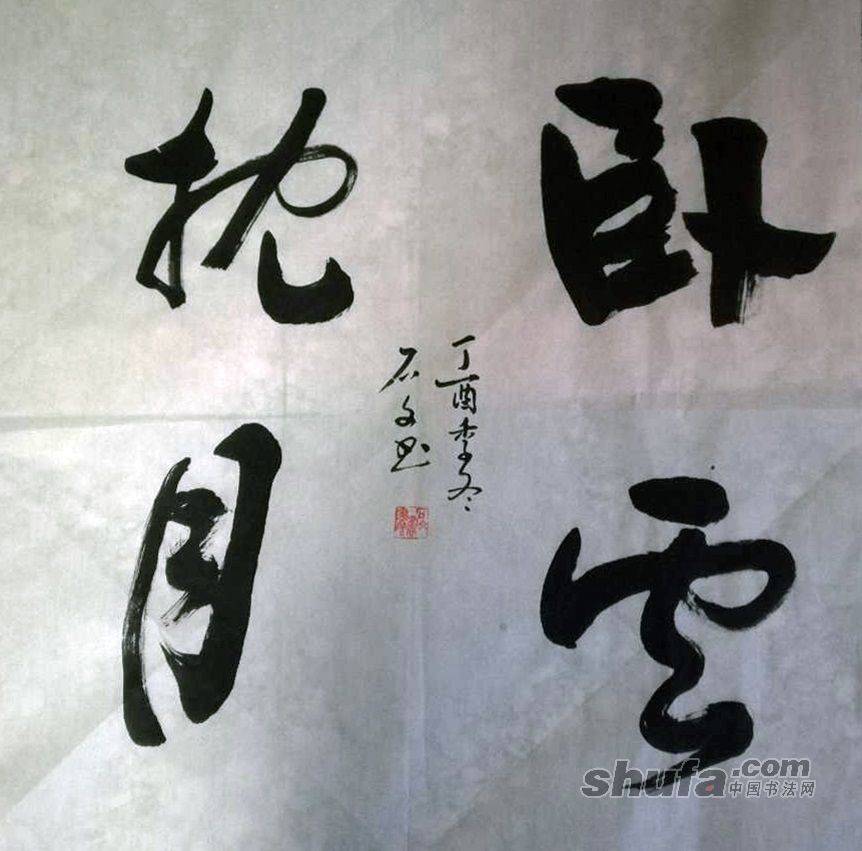 卧雲
枕月
丁酉季冬
石文书
shufa.com
中国书法网